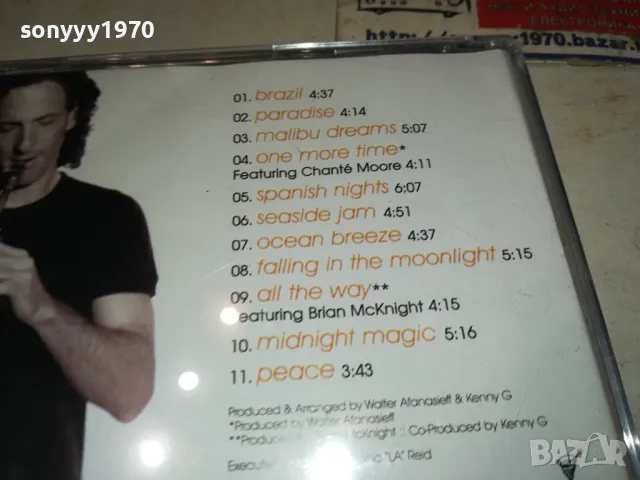 sonyyy1970
ЕЛЕКТРОНИКА
1970.bazar.
01. brazil 4:37
02. paradise 4:14
03. malibu dreams 5:07
04. one more time*
Featuring Chanté Moore 4:11
05. spanish nights 6:07
06. seaside jam 4:51
07. ocean breeze 4:37
08. falling in the moonlight 5:15
09. all the way**
Featuring Brian McKnight 4:15
10. midnight magic 5:16
11. peace 3:43
Produced & Arranged by Walter Afanasieff & Kenny G
*Produced by Walter Afanasieff
McKnight :: Co-Produced by Kenny G
"LA" Reid
BAZAR